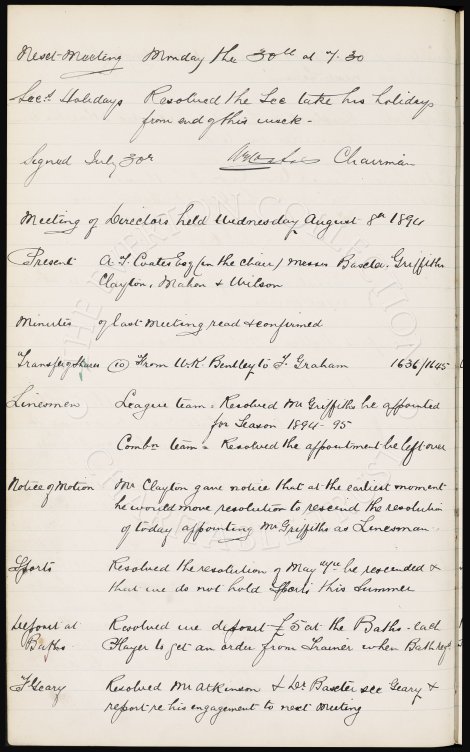 Next Meeting Monday the 30th at 7.30
Sec's Holidays Resolved the Sec take his holidays
from end of this week -
Signed July 30th Chairman
Meeting of Directors held Wednesday August 8th 1894
Present A. T. Coates Esq (in the chair) Messrs Baxter. Griffiths
Clayton, Mahon & Wilson
Minutes of last meeting read & confirmed
Transfer of Shares (10) From W. R. Bentley to F. Graham 1636/1645
Linesmen League team = Resolved Mr Griffiths be appointed
for Season 1894-95
Combn team = Resolved the appointment be left over
Notice of Motion Mr Clayton gave notice that at the earliest moment
he would move resolution to rescind the resolution
of today appointing Mr Griffiths as Linesman.
Sports Resolved the resolution of May be rescinded &
that we do not hold Sports this Summer
Deposit at Resolved we deposit £5 at the Baths - each
Baths. Player to get an order from Trainer when Bath reqd
F Geary Resolved Mr Atkinson & Dr Baxter see Geary &
report re his engagement to next meeting